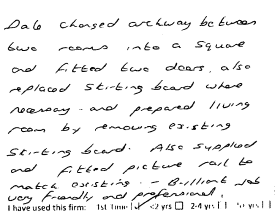 Dale changed archway between
two rooms into a square
and fitted two doors, also
replaced skirting board where
necessary - and prepared living
room by removing existing
skirting board. Also supplied
and fitted picture rail to
match existing - Brilliant Job
very friendly and professional.
I have used this firm: 1st time <2 yrs 2-4 yrs